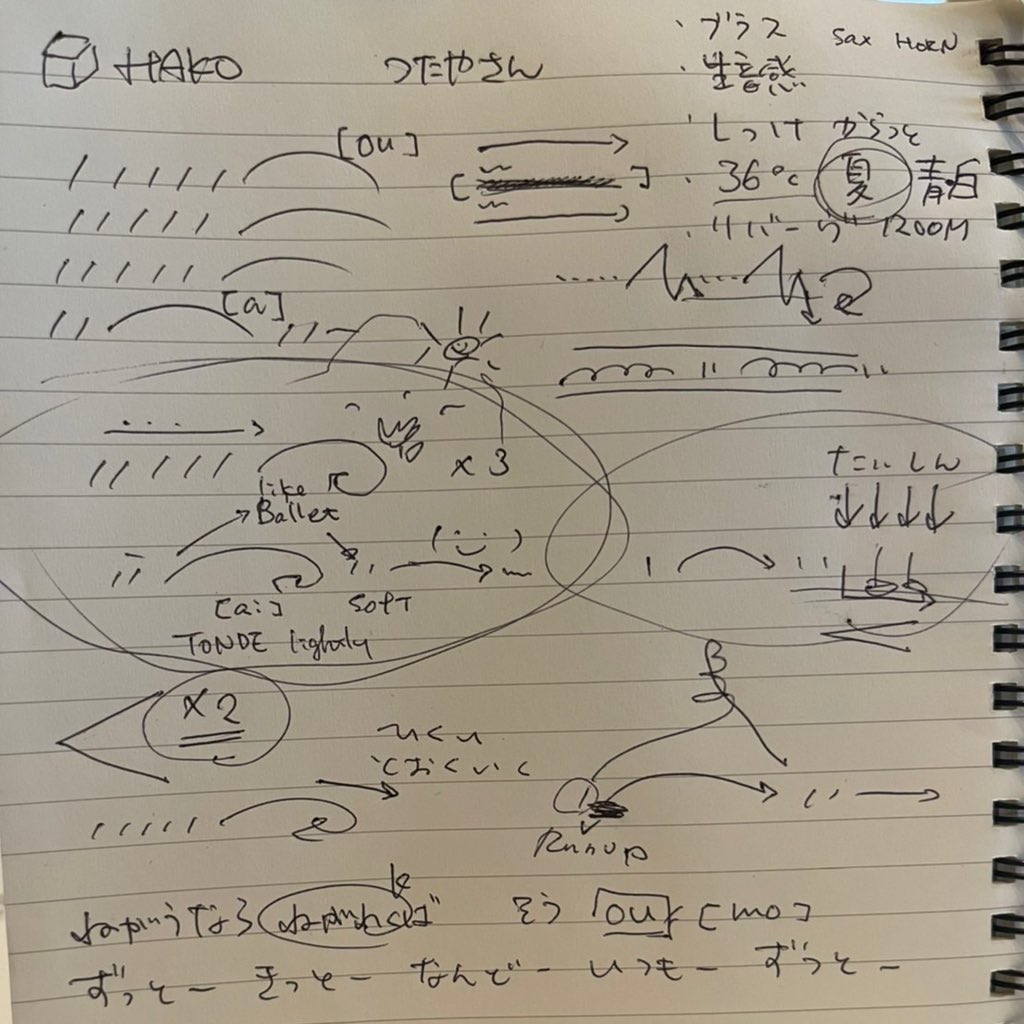 HAKO つたやさん
・ブラス Sax HORN
・生音感
・しっけ からっと
・36℃ 夏 青白
・リバーヴ 1200M
[ou]
[a]
×3
like
Ballet
[a:] soft
TONDE lightly
たいしん
×2
ひくい
とおくいく
Runup
ねがうなら ねがわくば そう [ou] [mo]
ずっとー きっとー なんどー いつもー ずっとー